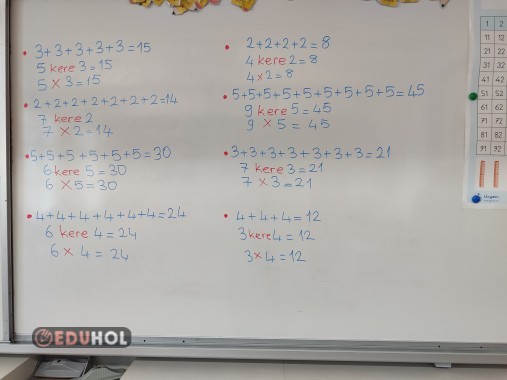 • 3+3+3+3+3=15
5 kere 3=15
5 x 3=15
• 2+2+2+2+2+2+2=14
7 kere 2
7 x 2=14
• 5+5+5+5+5+5=30
6 kere 5=30
6 x 5=30
• 4+4+4+4+4+4=24
6 kere 4=24
6 x 4=24
• 2+2+2+2=8
4 kere 2=8
4 x 2=8
• 5+5+5+5+5+5+5+5+5=45
9 kere 5=45
9 x 5=45
• 3+3+3+3+3+3+3=21
7 kere 3=21
7 x 3=21
• 4+4+4=12
3 kere 4=12
3 x 4=12
1 2
11 12
21 22
31 32
41 42
51 52
61 62
71 72
81 82
91 92
EDUHOL